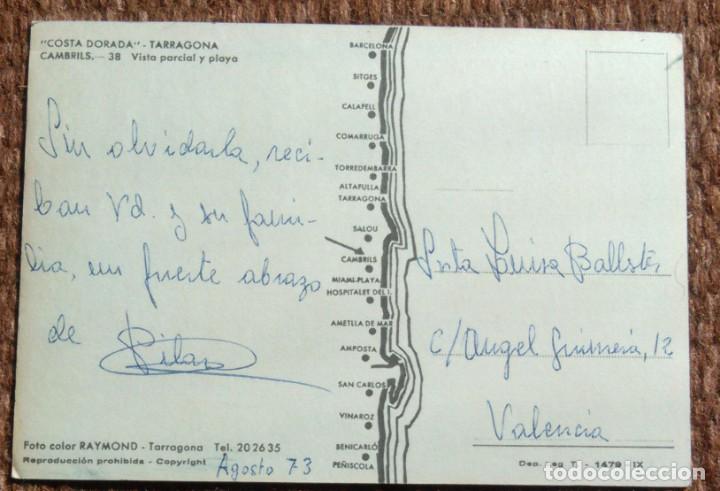 "COSTA DORADA" - TARRAGONA
CAMBRILS. — 38 Vista parcial y playa
Sin olvidarla, reci-
ban Vd. y su fami-
lia, un fuerte abrazo
de Pilar
Foto color RAYMOND - Tarragona Tel. 202635
Reproducción prohibida - Copyright
Agosto 73
BARCELONA
SITGES
CALAFELL
COMARRUGA
TORREDEMBARRA
ALTAFULLA
TARRAGONA
SALOU
CAMBRILS
MIAMI-PLAYA
HOSPITALET DEL I.
AMETLLA DE MAR
AMPOSTA
SAN CARLOS
VINAROZ
BENICARLÓ
PEÑISCOLA
Srta Luisa Ballester
C/ Angel Guimerá, 12
Valencia
Dep. Leg. T. - 1479 - IX
todocoleccion.net